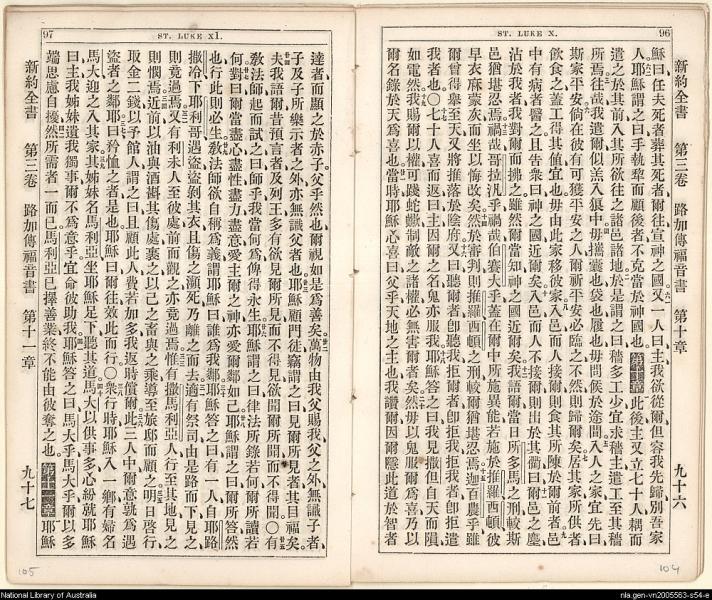 ST. LUKE X. 96
新約全書 第三卷 路加傳福音書 第十章 九十六
穌曰任夫死者葬其死者爾往宣神之國又一人曰主我欲從爾但容我先歸別吾家
人耶穌謂之曰手執犂而顧後者不克當於神國也第十章此後主又立七十人耦而
遣之於其前入其所欲往之諸邑諸地於是謂之曰穡多工少宜求穡主遣工至其穡
所焉往哉我遣爾似羔入狼中毋攜囊也袋也履也毋問候於途間入人之家宜先曰
斯家平安倘在彼有可獲平安之人爾祈平安必臨之不然則歸爾矣居其家所供者
飲食之蓋工得其值宜也毋由此家移彼家入邑而人接爾則食其所陳於爾前者邑
中有病者醫之且告衆曰神之國近爾矣入邑而人不接爾則出於其衢曰爾邑之塵
沾於我者我對爾而拂之雖然爾當知神之國近爾矣我語爾當日所多馬之刑較斯
邑猶堪忍焉禍哉哥拉汛乎禍哉伯賽大乎蓋在爾中所施異能若施於推羅西頓彼
早衣麻蒙灰而坐以悔改矣然於審判則推羅西頓之刑較爾猶堪忍焉迦百農乎雖
爾曾得舉至天又將推落於陰府又曰聽爾者卽聽我拒爾者卽拒我拒我者卽拒遣
我者也〇七十人喜而返曰主因爾之名鬼亦服我耶穌答之曰我見撒但自天而隕
如電然我賜爾以權可踐蛇蠍制敵之諸權必無害爾者矣然毋以鬼服爾爲喜乃以
爾名錄於天爲喜也當時耶穌心喜曰父乎天地之主也我讚爾因爾隱此道於智者
104
97 ST. LUKE XI.
達者而顯之於赤子父乎然也爾視如是爲善矣萬物由我父賜我父之外無識子者
子及子所樂示者之外亦無識父者也耶穌顧門徒竊謂之曰見爾所見者其目福矣
夫我語爾昔預言者及列王多有欲見爾所見而不得見欲聞爾所聞而不得聞〇有
敎法師起而試之曰師乎我當何爲俾得永生耶穌謂之曰律法所錄若何爾所讀若
何對曰爾當盡心盡性盡力盡意愛主爾之神亦愛爾鄰如己耶穌謂之曰爾所答然
也行此則必生敎法師欲自稱爲義謂耶穌曰誰爲我鄰耶穌答之曰有一人自耶路
撒冷下耶利哥遇盜盜剝其衣且傷之瀕死乃離之而去適有祭司由是路而下見之
則竟過焉又有利未人至彼處前而觀之亦竟過焉惟有撒馬利亞人行至其地見之
則憫焉近前以油與酒斟其傷處裹之以己之畜輿之乘導至旅邸而顧之明日啓行
取金二錢以予館人謂之曰且顧此人費若加多我返時償爾此三人中爾意孰爲遇
盜者之鄰耶曰矜恤之者是也耶穌曰爾往效此而行〇衆行時耶穌入一鄉有婦名
馬大迎之入其家其姊妹名馬利亞坐耶穌足下聽其道馬大以供事多心紛就耶穌
曰主我姊妹遺我獨事爾不爲意乎宜命彼助我耶穌答之曰馬大乎馬大乎爾以多
端思慮自擾然所需者一而已馬利亞已擇善業終不能由彼奪之也第十一章耶穌
新約全書 第三卷 路加傳福音書 第十一章 九十七
105
National Library of Australia
nla.gen-vn2005563-s54-e